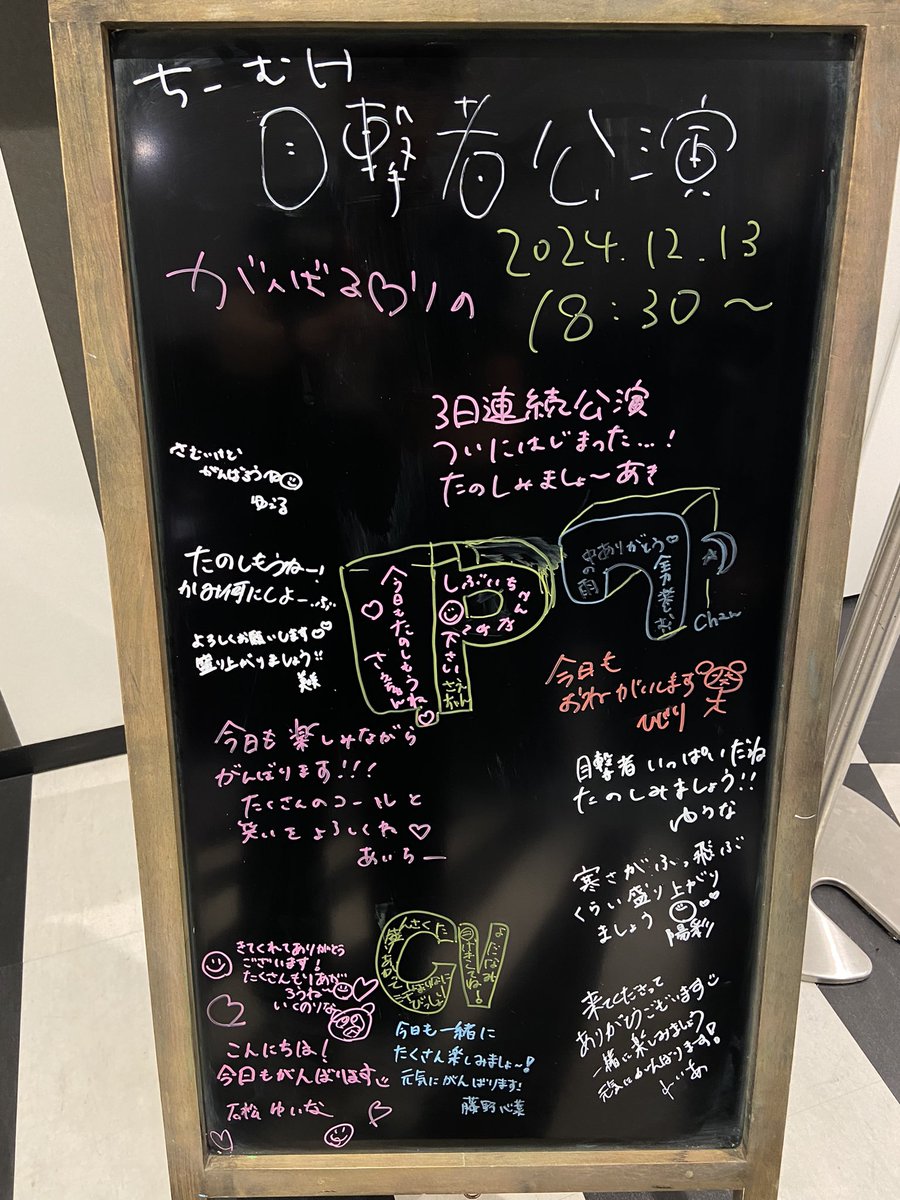 ちーむH
目撃者公演
2024.12.13
18:30〜
がんばる♡りの
3日連続公演
ついにはじまった…!
たのしみましょ〜あき
さむいけど
がんばろうね
ゆうる
たのしもうねー!
かみ何にしよー ぶ
よろしくお願いします♡
盛り上がりましょう!!
今日もたのしもうね
しぶいちゃん
下さい
さえちゃん
ありがとう♡
chan
今日も
おねがいします
ひじり
今日も楽しみながら
がんばります!!!
たくさんのコールと
笑いをよろしくね♡
あいちー
目撃者いっぱいだね
たのしみましょう!!
ゆうな
寒さがふっ飛ぶ
くらい盛り上がり
ましょう
陽彩
きてくれてありがとう
ございます!
たくさんもりあが
ろうね〜
いくのりな
こんにちは!
今日もがんばります
石松ゆいな
今日も一緒に
たくさん楽しみましょ〜!
元気にがんばります!
藤野心葉
来てくださって
ありがとうございます
一緒に楽しみましょう
元気にがんばります!